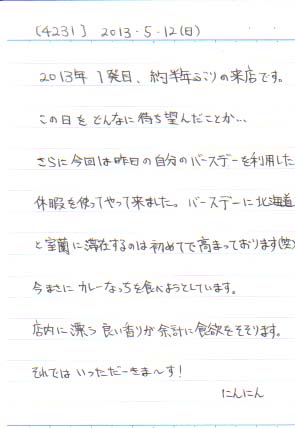 [4231] 2013.5.12(日)
2013年 1発目、約半年ぶりの来店です。
この日をどんなに待ち望んだことか…
さらに今回は昨日の自分のバースデーを利用した
休暇を使ってやって来ました。バースデーに北海道
と室蘭に滞在するのは初めてで高まっております(笑)
今まさにカレーなっちを食べようとしています。
店内に漂う良い香りが余計に食欲をそそります。
それではいっただーきまーす!
にんにん